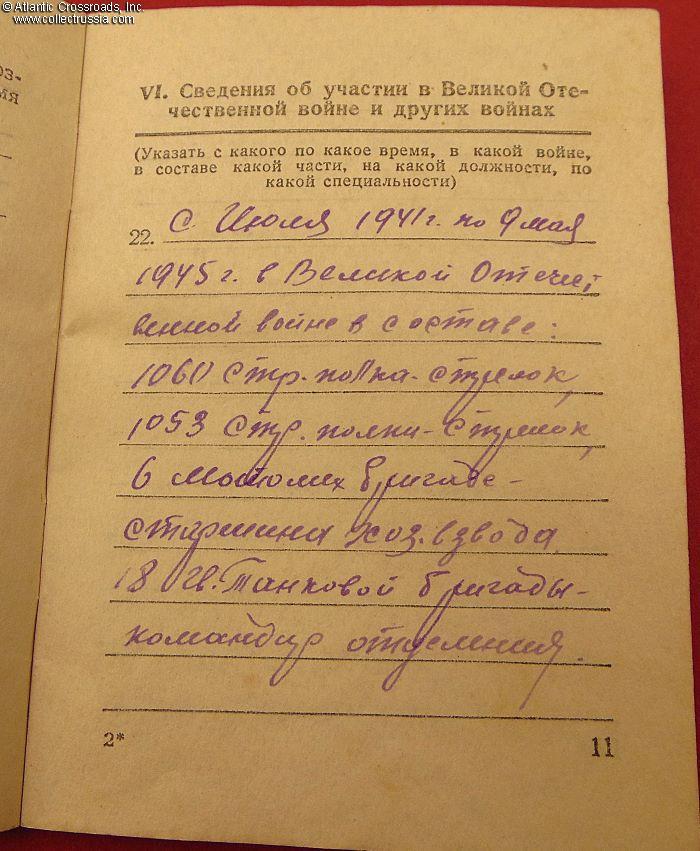 © Atlantic Crossroads, Inc.
www.collectrussia.com
оз-
мя
VI. Сведения об участии в Великой Оте-
чественной войне и других войнах
(Указать с какого по какое время, в какой войне,
в составе какой части, на какой должности, по
какой специальности)
22. С Июля 1941 г. по 9 мая
1945 г. в Великой Отечест
венной войне в составе:
1060 стр. полка - стрелок,
1053 стр. полка - стрелок,
6 бригаде -
старшина хоз. взвода
18 гв. Танковой бригады -
командир отделения.
2*
11